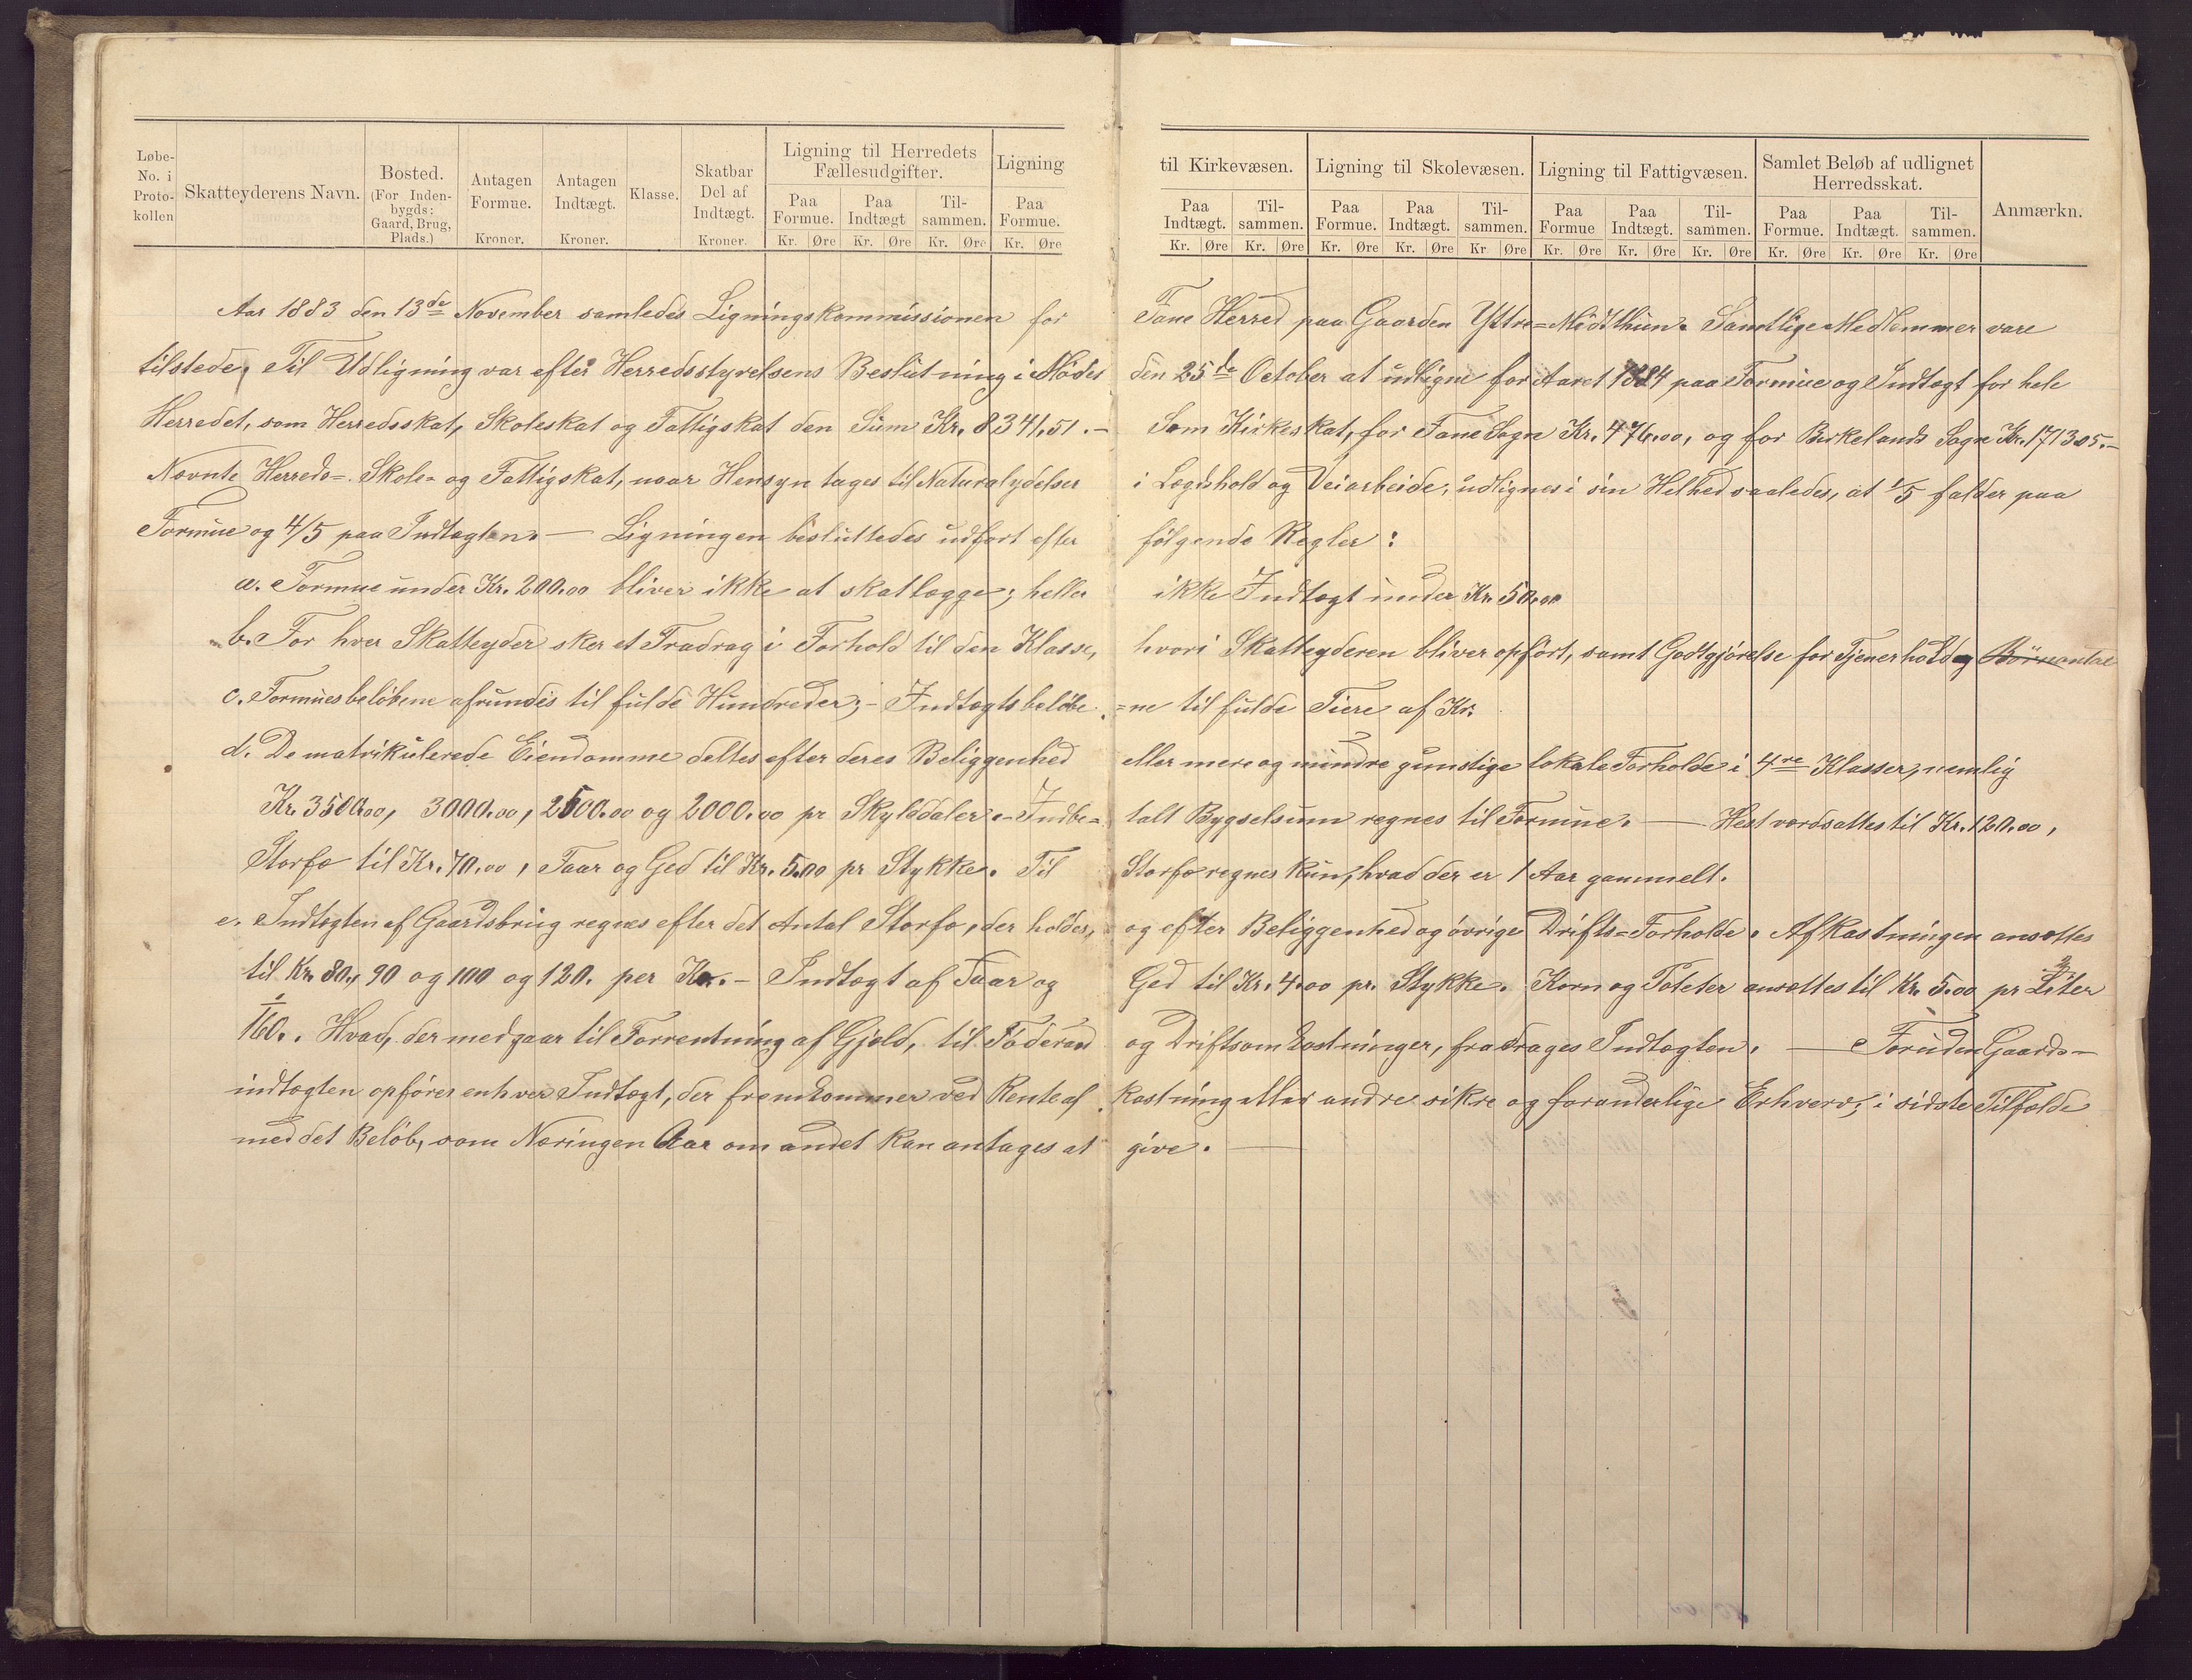 Løbe-No. i Protokollen
Skatteyderens Navn.
Bosted. (For Indenbygds: Gaard, Brug, Plads.)
Antagen Formue. Kroner.
Antagen Indtægt. Kroner.
Klasse.
Skatbar Del af Indtægt. Kroner.
Ligning til Herredets Fællesudgifter.
Paa Formue. Kr. Øre
Paa Indtægt Kr. Øre
Tilsammen. Kr. Øre
Ligning
Paa Formue. Kr. Øre
til Kirkevæsen.
Paa Indtægt. Kr. Øre
Tilsammen. Kr. Øre
Ligning til Skolevæsen.
Paa Formue. Kr. Øre
Paa Indtægt. Kr. Øre
Tilsammen. Kr Øre
Ligning til Fattigvæsen.
Paa Formue Kr. Øre
Paa Indtægt. Kr. Øre
Tilsammen. Kr. Øre
Samlet Beløb af udlignet Herredsskat.
Paa Formue. Kr. Øre
Paa Indtægt. Kr. Øre
Tilsammen. Kr. Øre
Anmærkn.
Aar 1883 den 13de November samledes Ligningskommissionen for Fane Herred paa Gaarden Yttre=Midtthun. Samtlige Medlemmer vare
tilstede. Til Udligning var efter Herredsstyrelsens Beslutning i Mødes den 25de October at udligne for Aaret 1884 paa Formue og Indtægt for hele
Herredet, som Herredsskat, Skoleskat og Fattigskat den Sum Kr. 8341,51.– Som Kirkeskat, for Fane Sogn Kr. 476,00, og for Birkelands Sogn Kr. 171305.–
Nævnte Herreds=. Skole= og Fattigskat, naar Hensyn tages til Naturalydelser i Lægdshold og Veiarbeide, udlignes i sin Helhed saaledes, at 1/5 falder paa
Formue og 4/5 paa Indtægten. — Ligningen besluttedes udført efter følgende Regler:
a. Formue under Kr. 200.00 bliver ikke at skatlægge; heller ikke Indtægt under Kr. 50.00
b. For hver Skatteyder sker et Fradrag i Forhold til den Klasse, hvori Skatteyderen bliver opført, samt Godtgjørelse for Tjenerhold og Börneantal
c. Formuesbeløbene afrundes til fulde Hundreder; – Indtægtsbeløbe =ne til fulde Tiere af Kr.
d. De matrikulerede Eiendomme deltes efter deres Beliggenhed eller mere og mindre gunstige lokale Forholde i 4re Klasser, nemlig
Kr. 3500.00, 3000.00, 2500.00 og 2000.00 pr Skylddaler. – Indbe= talt Bygselsum regnes til Formue. — Hest værdsattes til Kr. 120.00,
Storfæ til Kr. 70.00, Faar og Ged til Kr. 5.00 pr Stykke. Til Storfæ regnes kun, hvad der er 1 Aar gammelt.
e. Indtægten af Gaardsbrug regnes efter det Antal Storfæ, der holdes, og efter Beliggenhed og øvrige Drifts=Forholde. Afkastningen ansættes
til Kr. 80, 90 og 100 og 120. per Ko. – Indtægt af Faar og Ged til Kr. 4.00 pr. Stykke. Korn og Poteter ansættes til Kr. 5.00 pr Liter
160. Hvad, der medgaar til Forrentning af Gjæld, til Føderaad og Driftsomkostninger, fradrages Indtægten. — Foruden Gaards–
indtægten opføres enhver Indtægt, der fremkommer ved Rente af kastning eller andre sikre og foranderlige Erhverv; i sidste Tilfælde
med det Beløb, som Næringen Aar om andet kan antages at give. —